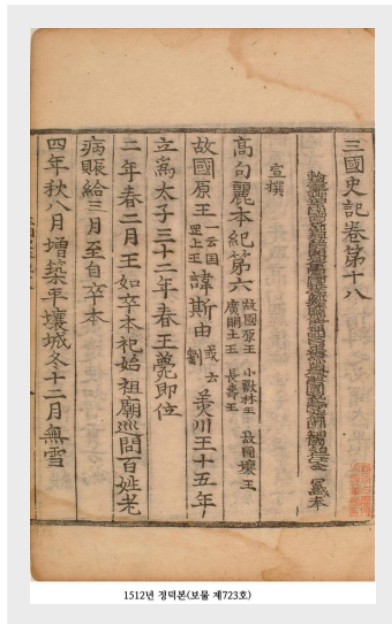 三國史記卷第十八
宣撰
高句麗本紀第六 故國原王 小獸林王 故國壤王 廣開土王 長壽王
故國原王 一云国罡上王 諱斯由 或云劉 美川王十五年
立爲太子三十二年春王薨即位
二年春二月王如卒本祀始祖廟巡問百姓老
病賑給三月至自卒本
四年秋八月增築平壤城冬十二月無雪
1512년 정덕본(보물 제723호)